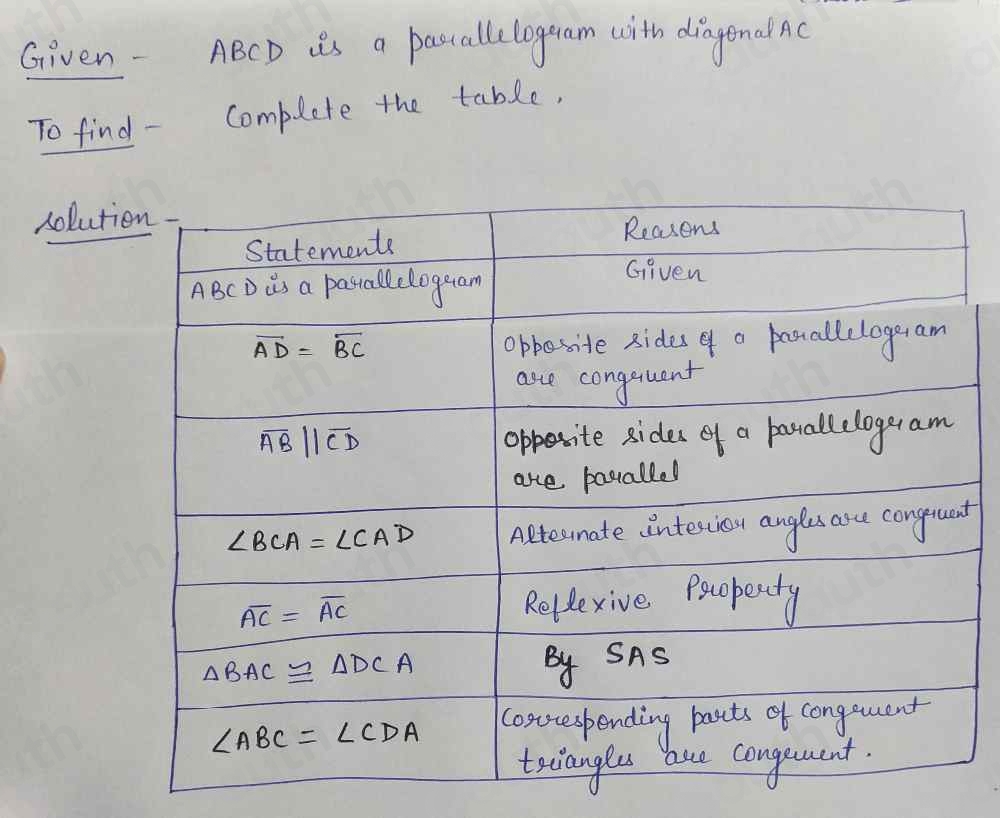 Given - ABCD is a parallelogram with diagonal AC
To find - Complete the table.
Solution -
Statements Reasons
ABCD is a parallelogram Given
A̅D̅ = B̅C̅ Opposite sides of a parallelogram
are congruent
A̅B̅ || C̅D̅ opposite sides of a parallelogram
are parallel
∠BCA = ∠CAD Alternate interior angles are congruent
A̅C̅ = A̅C̅ Reflexive Property
△BAC ≅ △DCA By SAS
∠ABC = ∠CDA Corresponding parts of congruent
triangles are congruent.